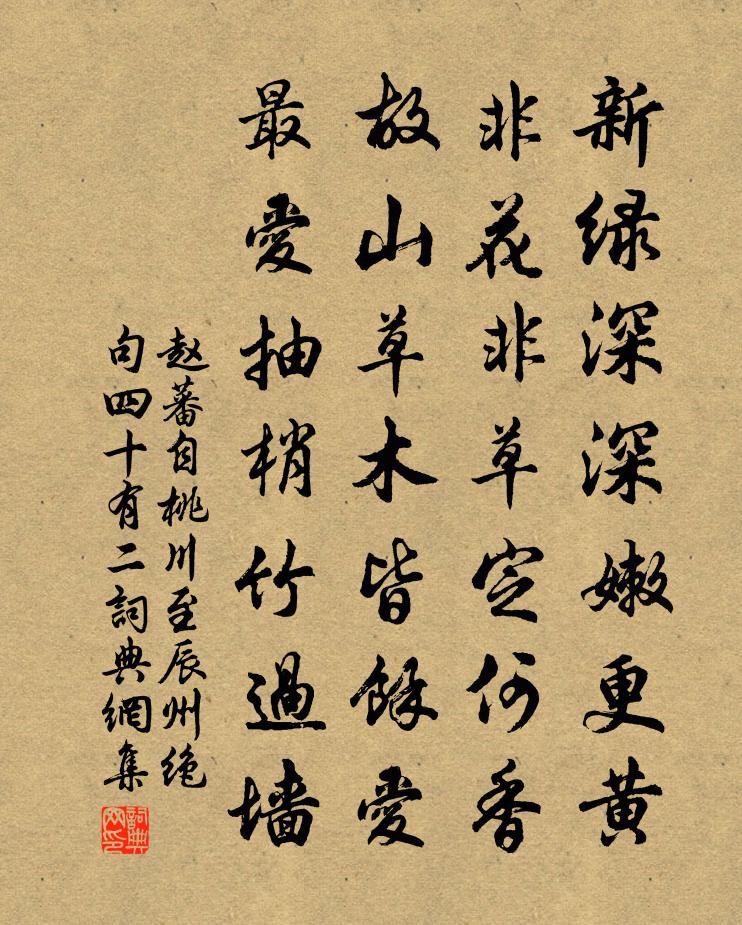 新绿深深嫩更黄
非花非草定何香
故山草木皆餘愛
最愛抽梢竹過墙
赵蕃自桃川至辰州绝
句四十有二詞典網集
詞典网印